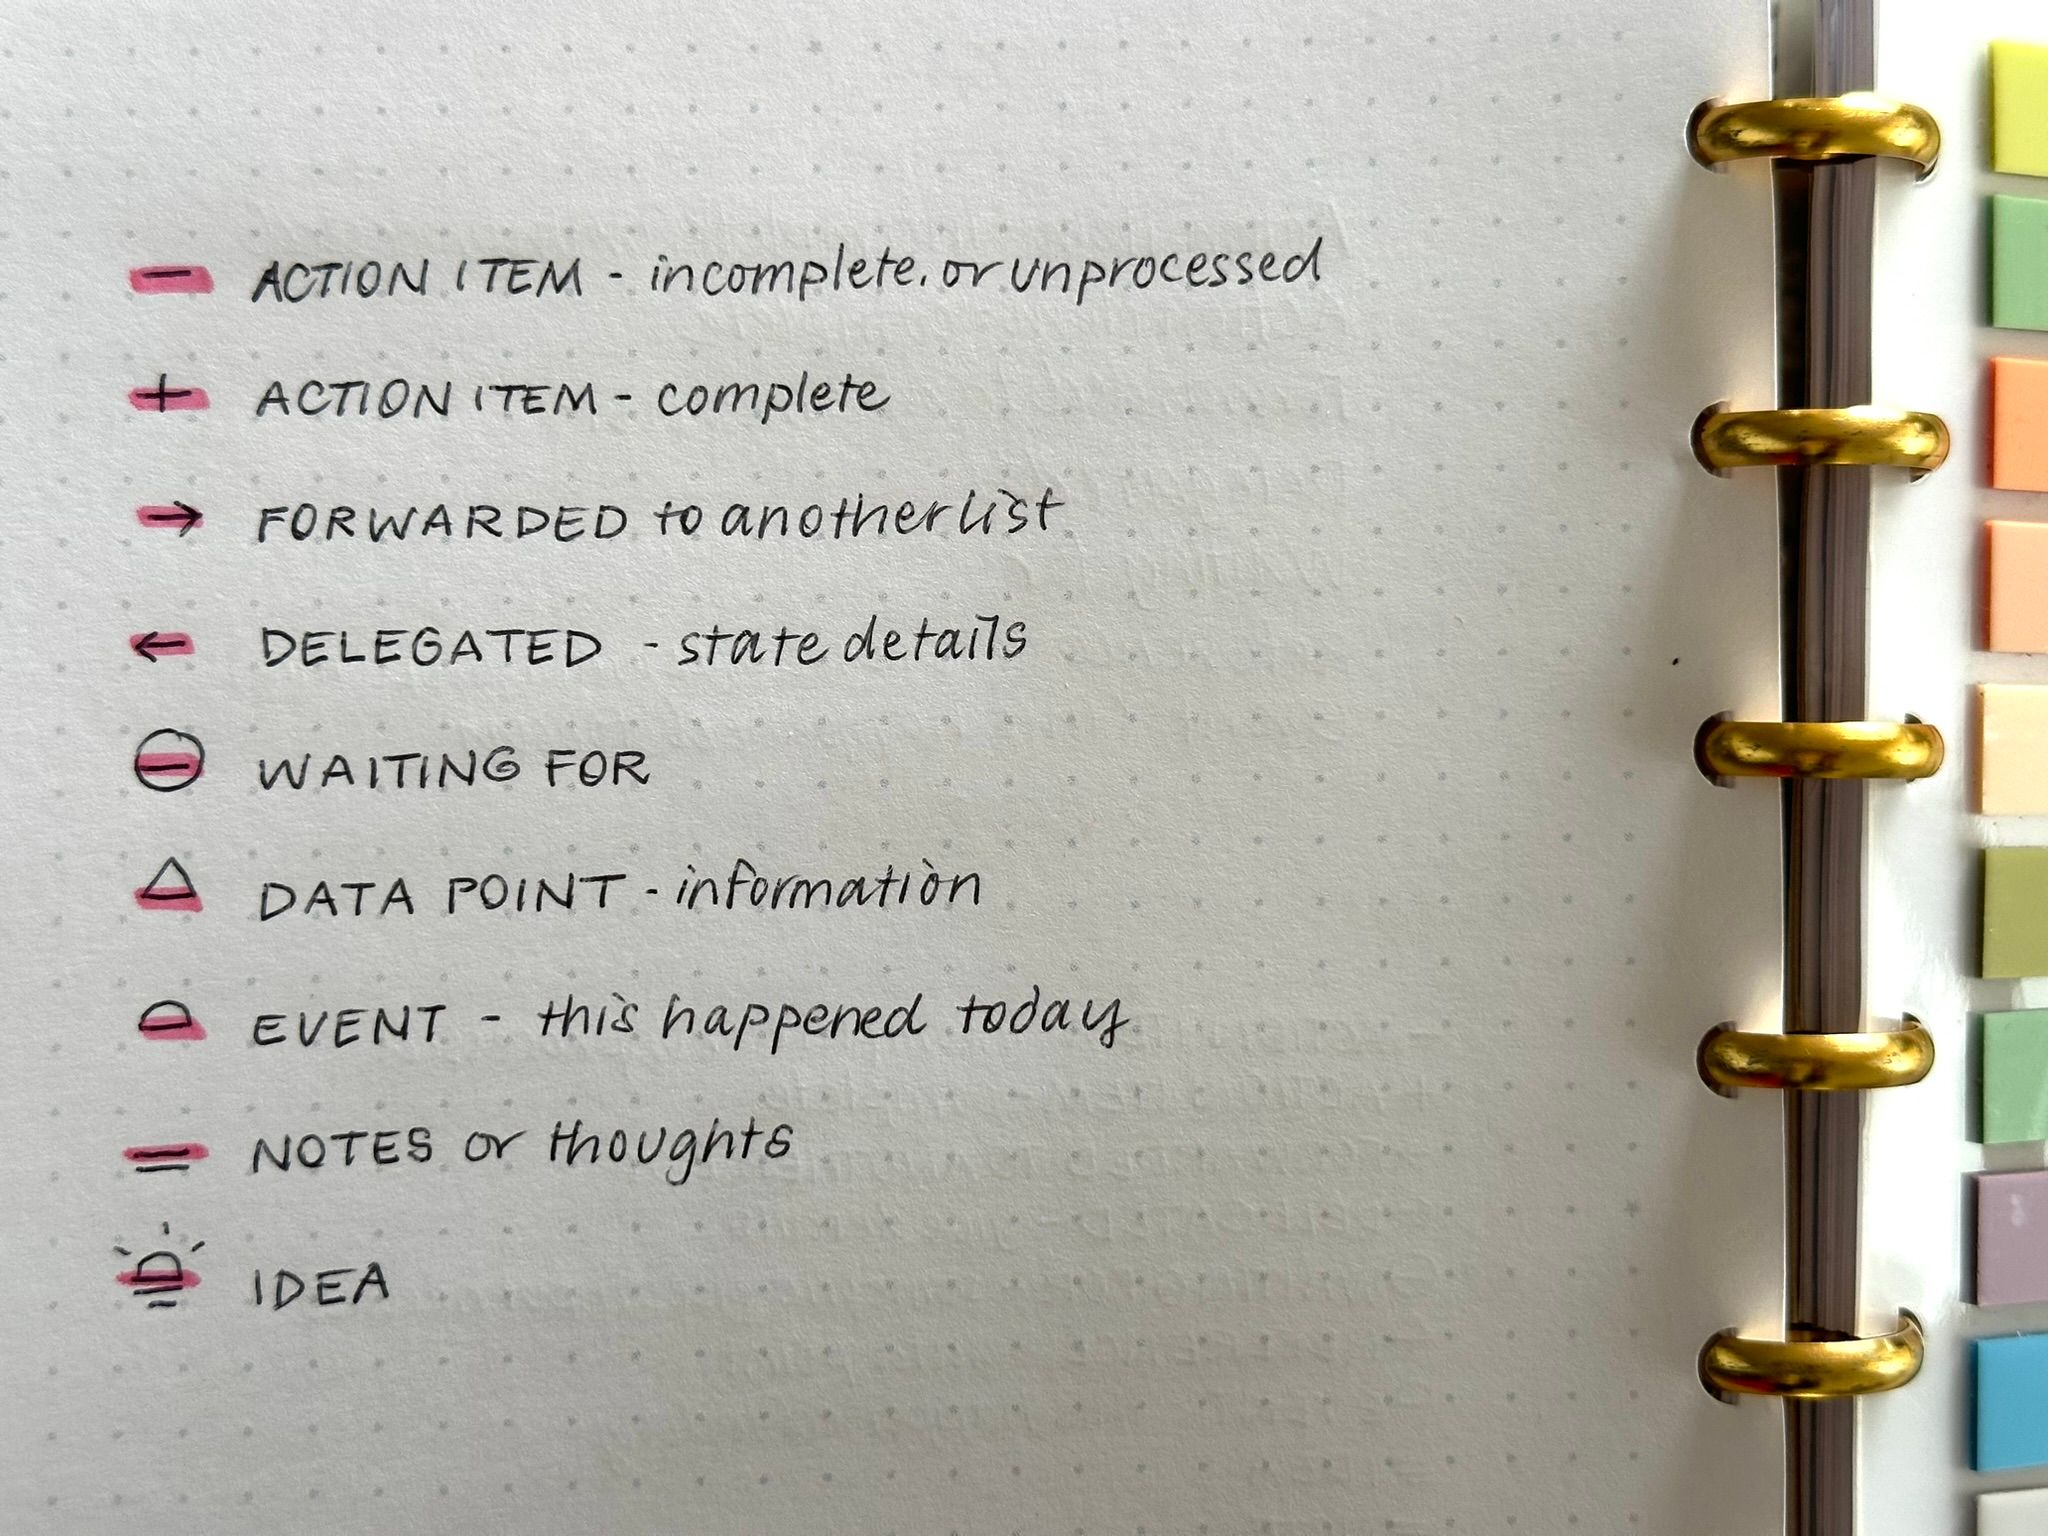 — ACTION ITEM - incomplete. or unprocessed
+ ACTION ITEM - complete
→ FORWARDED to another list
← DELEGATED - state details
⊖ WAITING FOR
△ DATA POINT - information
EVENT - this happened today
= NOTES or thoughts
IDEA